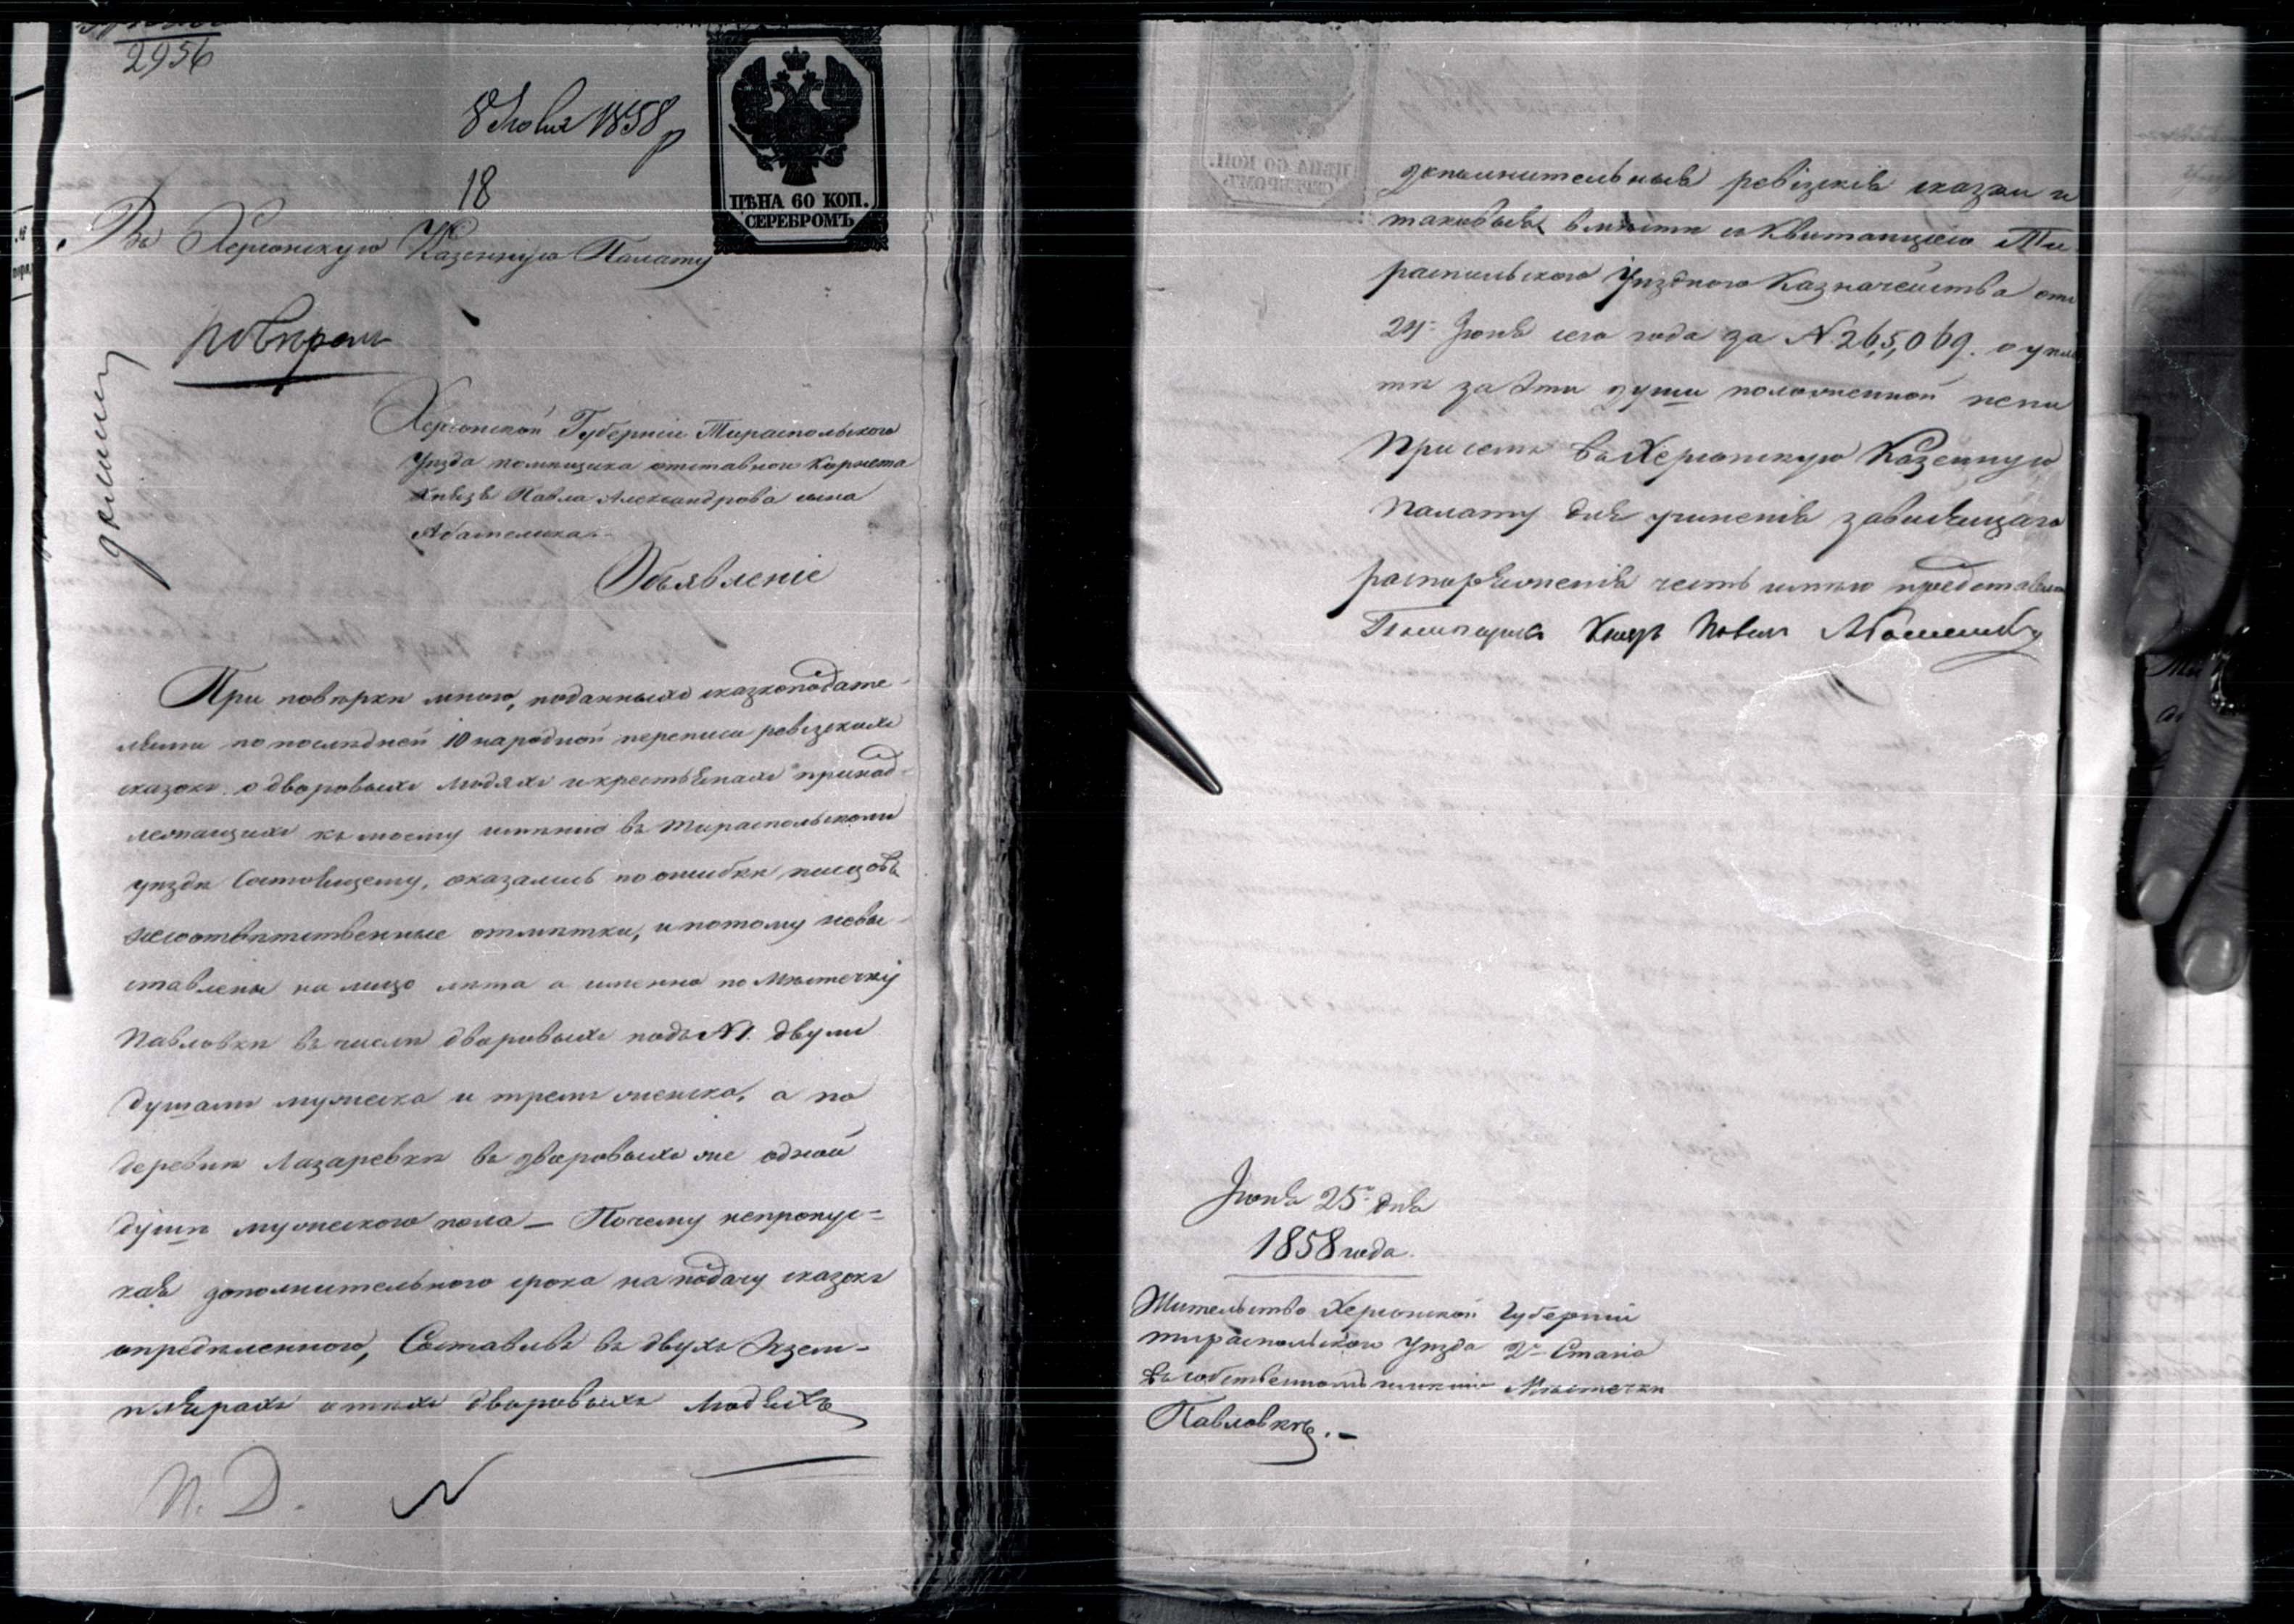 2956
8 Июля 1858 р
18
ЦѢНА 60 КОП.
СЕРЕБРОМЪ
Въ Херсонскую Казенную Палату
Херсонской Губерніи Тираспольскаго
Уѣзда помѣщика отставнаго Корнета
Князя Павла Александрова сына
Абамелика.
Объявленіе
При повѣркѣ мною, поданныхъ сказкоподате-
лями по послѣдней 10 народной переписи ревизскихъ
сказокъ о дворовыхъ людяхъ и крестьянахъ принад-
лежащихъ къ моему имѣнію въ Тираспольскомъ
уѣздѣ Состоящему, оказались по ошибкѣ писцовъ
несоотвѣтственные отмѣтки, и потому невы-
ставлены на лицо лѣта а именно по Мѣстечку
Павловкѣ въ числѣ дворовыхъ подъ № 1. двумъ
душамъ мужеска и тремъ женска, а по
деревнѣ Лазаревкѣ въ дворовыхъ же одной
душѣ мужескаго пола — Почему непропус=
кая дополнительнаго срока на подачу сказокъ
опредѣленнаго, Составивъ въ двухъ Экзем-
плярахъ о тѣхъ дворовыхъ людяхъ
П. Д.
дополнительныя ревизскія сказки и
таковыя вмѣстѣ съ Квитанціею Ти-
распольскаго Уѣзднаго Казначейства отъ
24 Іюня сего года за № 265,069. о упла
тѣ за эти души положенной пени
При семъ въ Херсонскую Казенную
Палату для учиненія зависящаго
распоряженія честь имѣю представить
Помѣщикъ Князь Павелъ Абамеликъ
Іюня 25 дня
1858 года.
Жительство Херсонской Губерніи
Тираспольскаго Уѣзда 2го Стана
въ собственномъ имѣніи Мѣстечкѣ
Павловкѣ.—